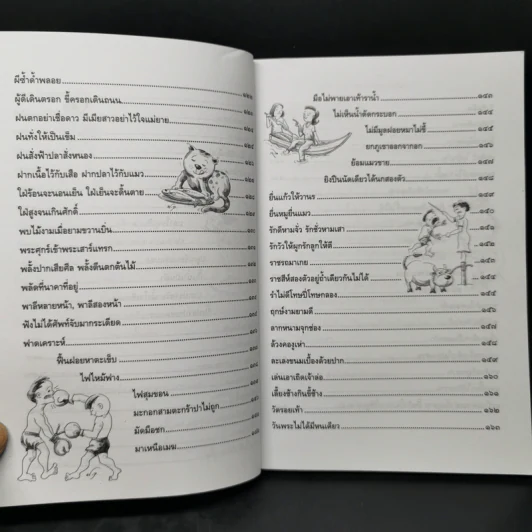 ผีซ้ำด้ำพลอย
ผู้ดีเดินตรอก ขี้ครอกเดินถนน
ฝนตกอย่าเชื่อดาว มีเมียสาวอย่าไว้ใจแม่ยาย
ฝนทั่งให้เป็นเข็ม
ฝนสั่งฟ้าปลาสั่งหนอง
ฝากเนื้อไว้กับเสือ ฝากปลาไว้กับแมว
ใฝ่ร้อนจะนอนเย็น ใฝ่เย็นจะดิ้นตาย
ใฝ่สูงจนเกินศักดิ์
พบไม้งามเมื่อยามขวานบิ่น
พระศุกร์เข้าพระเสาร์แทรก
พลั้งปากเสียศีล พลั้งตีนตกต้นไม้
พลัดที่นาคาที่อยู่
พาลีหลายหน้า, พาลีสองหน้า
ฟังไม่ได้ศัพท์จับมากระเดียด
ฟาดเคราะห์
ฟื้นฝอยหาตะเข็บ
ไฟไหม้ฟาง
ไฟสุมขอน
มะกอกสามตะกร้าปาไม่ถูก
มัดมือชก
มาเหนือเมฆ
มือไม่พายเอาเท้าราน้ำ ๑๔๓
ไม่เห็นน้ำตัดกระบอก ๑๔๔
ไม่มีมูลฝอยหมาไม่ขี้ ๑๔๕
ยกภูเขาออกจากอก ๑๔๖
ย้อมแมวขาย ๑๔๗
ยิงปืนนัดเดียวได้นกสองตัว ๑๔๘
ยื่นแก้วให้วานร ๑๔๙
ยื่นหมูยื่นแมว ๑๕๐
รักดีหามจั่ว รักชั่วหามเสา ๑๕๑
รักวัวให้ผูกรักลูกให้ตี ๑๕๒
ราชรถมาเกย ๑๕๓
ราชสีห์สองตัวอยู่ถ้ำเดียวกันไม่ได้ ๑๕๔
รำไม่ดีโทษปี่โทษกลอง ๑๕๕
ฤกษ์งามยามดี ๑๕๖
ลากหนามจุกช่อง ๑๕๗
ล้วงคองูเห่า ๑๕๘
ละเลงขนมเบื้องด้วยปาก ๑๕๙
เล่นเอาเถิดเจ้าล่อ ๑๖๐
เลี้ยงช้างกินขี้ช้าง ๑๖๑
วัดรอยเท้า ๑๖๒
วันพระไม่ได้มีหนเดียว ๑๖๓